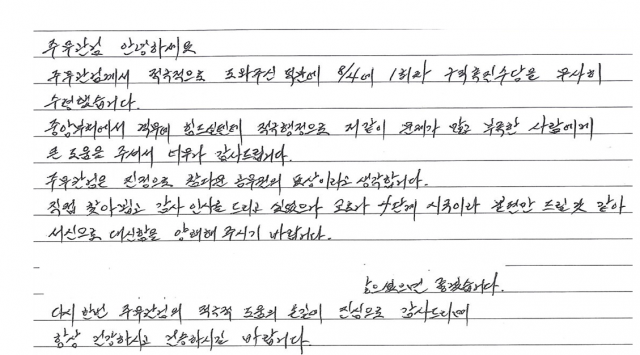 주무관님 안녕하세요
주무관님께서 적극적으로 도와주신 덕분에 8/4에 1회차 구직촉진수당을 무사히
수령했습니다.
중앙부처에서 격무에 힘드실텐데 적극행정으로 저같이 문제가 많고 부족한 사람에게
큰 도움을 주셔서 너무나 감사드립니다.
주무관님은 진정으로 참다운 공무원의 표상이라고 생각합니다.
직접 찾아뵙고 감사 인사를 드리고 싶었으나 코로나 4단계 시국이라 불편만 드릴 것 같아
서신으로 대신함을 양해해 주시기 바랍니다.
있으셨으면 좋겠습니다.
다시 한번 주무관님의 적극적 도움의 손길에 진심으로 감사드리며
항상 건강하시고 건승하시길 바랍니다.